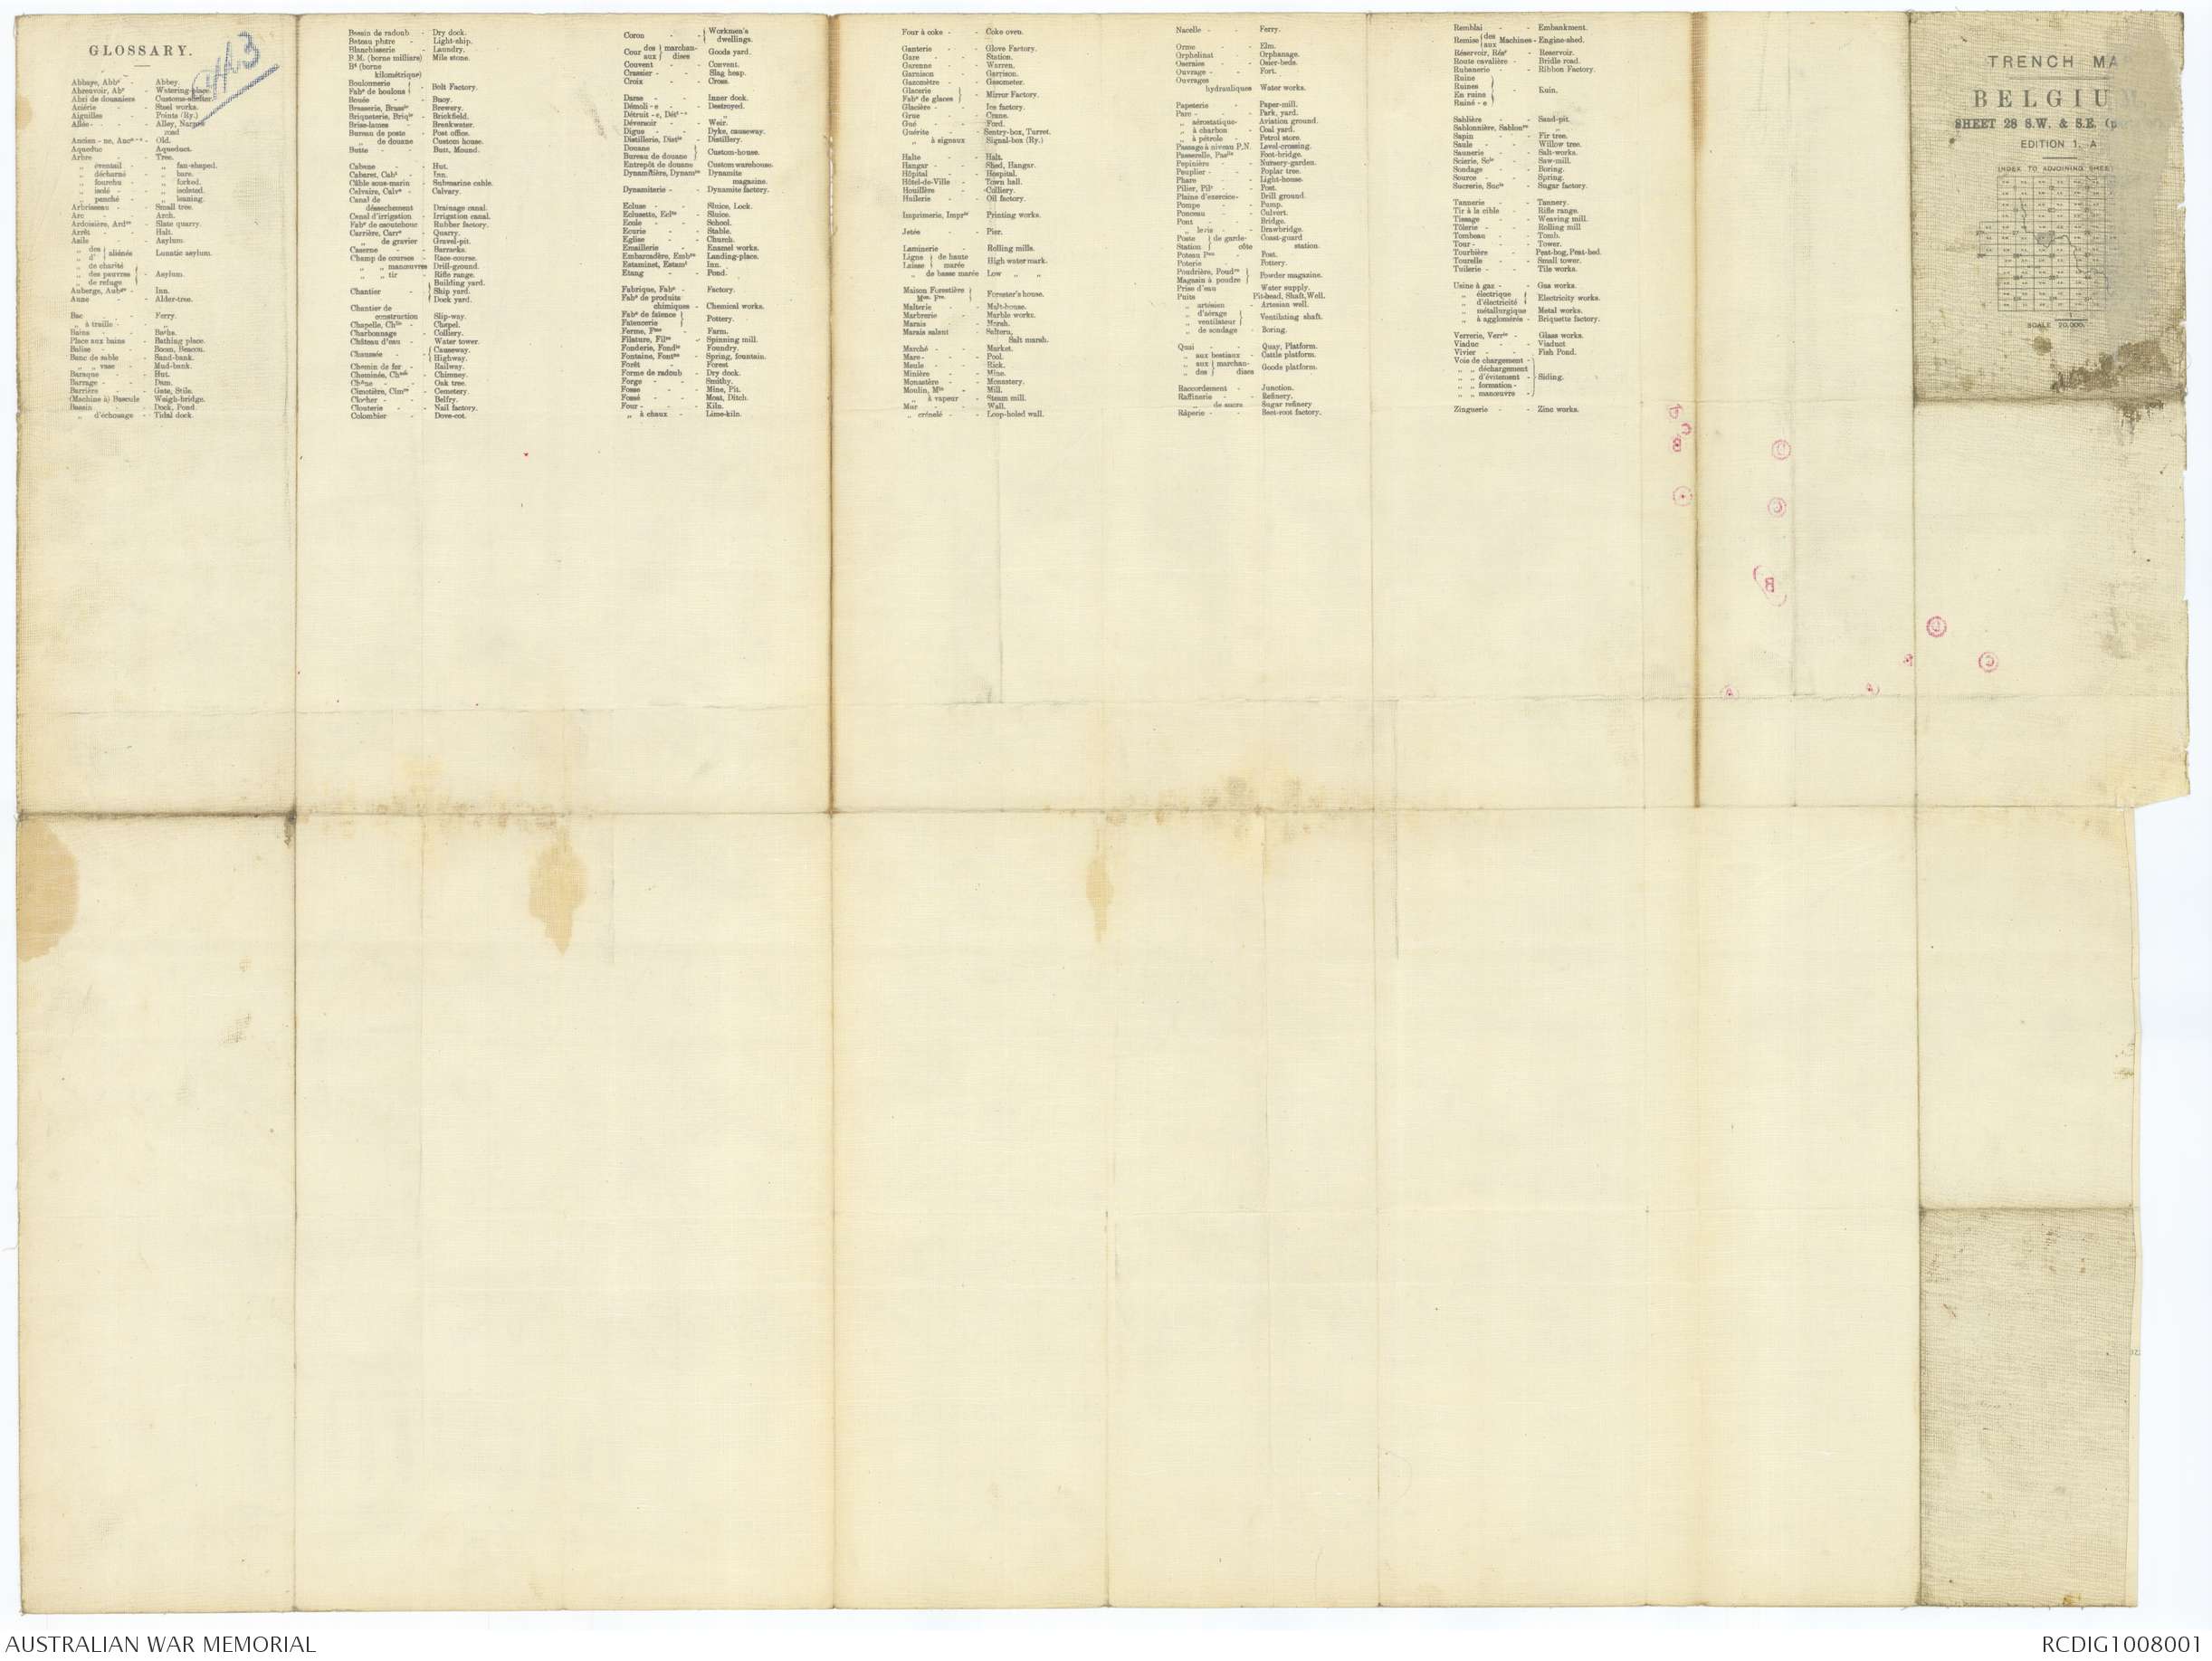 GLOSSARY.
Abbaye, Abbe - Abbey.
Abreuvoir, Abr - Watering-place.
Abri de douaniers Customs-shelter.
Aciérie - - Steel works.
Aiguilles - Points (Ry.)
Allée - - - Alley, Narrow
road
Ancien - ne, Anc - Old.
Aqueduc - Aqueduct.
Arbre - - Tree.
„ éventail - „ fan-shaped.
„ décharné - „ bare.
„ fourchu - „ forked.
„ isolé - - „ isolated.
„ penché - „ leaning.
Arbrisseau - - Small tree.
Arc - - Arch.
Ardoisière, Ardre - Slate quarry.
Arrêt - - Halt.
Asile - - Asylum.
„ des } aliénés Lunatic asylum.
„ d'
„ de charité
„ des pauvres } - Asylum.
„ de refuge
Auberge, Aubge - Inn.
Aune - - Alder-tree.
Bac - - Ferry.
„ à traille - „
Bains - - Baths.
Place aux bains - Bathing place.
Balise - - Boom, Beacon.
Banc de sable - Sand-bank.
„ „ vase - Mud-bank.
Baraque - - Hut.
Barrage - - Dam.
Barrière - - Gate, Stile.
(Machine à) Bascule Weigh-bridge.
Bassin - - Dock, Pond.
„ d'échouage - Tidal dock.
Bassin de radoub - Dry dock.
Bateau phare - Light-ship.
Blanchisserie - Laundry.
P.M. (borne milliare) Mile stone.
Bs (borne
kilométrique)
Boulonnerie
Fabe de boulons } Bolt Factory.
Bouée - - Buoy.
Brasserie, Brasie - Brewery.
Briqueterie, Briqie - Brickfield.
Brise-lames - Breakwater.
Bureau de poste - Post office.
„ de douane Custom house.
Butte - - Butt, Mound.
Cabane - - Hut.
Cabaret, Cabt - Inn.
Câble sous-marin - Submarine cable.
Calvaire, Calve - Calvary.
Canal de
déssechement Drainage canal.
Canal d'irrigation - Irrigation canal.
Fabe de caoutchouc Rubber factory.
Carrière, Carre - Quarry.
„ de gravier - Gravel-pit.
Caserne - - Barracks.
Champ de courses - Race-course.
„ „ manœuvres Drill-ground.
„ „ tir - Rifle range.
Chantier - { Building yard.
Ship yard.
Dock yard.
Chantier de
construction Slip-way.
Chapelle, Chlle - Chapel.
Charbonnage - Colliery.
Château d'eau - Water tower.
Chaussée - - { Causeway.
Highway.
Chemin de fer - Railway.
Cheminée, Chnée - Chimney.
Chêne - - Oak tree.
Cimetière, Cimre - Cemetery.
Clocher - - Belfry.
Clouterie - - Nail factory.
Colombier - Dove-cot.
Coron - - { Workmen's
dwellings.
Cour des } marchan-
aux } dises Goods yard.
Couvent - - Convent.
Crassier - - Slag heap.
Croix - - Cross.
Darse - - Inner dock.
Démoli - e - Destroyed.
Détruit - e, Dét - „
Déversoir - - Weir.
Digue - - Dyke, causeway.
Distillerie, Distie - Distillery.
Douane
Bureau de douane } Custom-house.
Entrepôt de douane Custom warehouse.
Dynamitière, Dynamre Dynamite
magazine.
Dynamiterie - - Dynamite factory.
Ecluse - - Sluice, Lock.
Eclusette, Eclte - Sluice.
Ecole - - School.
Ecurie - - Stable.
Eglise - - Church.
Emaillerie - Enamel works.
Embarcadère, Embre - Landing-place.
Estaminet, Estamt - Inn.
Etang - - Pond.
Fabrique, Fabe - Factory.
Fabe de produits
chimiques - Chemical works.
Fabe de faïence
Faïencerie } Pottery.
Ferme, Fme - Farm.
Filature, Filre - Spinning mill.
Fonderie, Fondie - Foundry.
Fontaine, Fontne - Spring, fountain.
Forêt - - Forest
Forme de radoub - Dry dock.
Forge - - Smithy.
Fosse - - Mine, Pit.
Fossé - - Moat, Ditch.
Four - - Kiln.
„ à chaux - Lime-kiln.
Four à coke - - Coke oven.
Ganterie - - Glove Factory.
Gare - - Station.
Garenne - - Warren.
Garnison - - Garrison.
Gazomètre - - Gasometer.
Glacerie
Fabe de glaces } Mirror Factory.
Glacière - - Ice factory.
Grue - - Crane.
Gué - - Ford.
Guérite - - Sentry-box, Turret.
„ à signaux - Signal-box (Ry.)
Halte - - Halt.
Hangar - - Shed, Hangar.
Hôpital - - Hospital.
Hôtel-de-Ville - Town hall.
Houillère - - Colliery.
Huilerie - - Oil factory.
Imprimerie, Imprie Printing works.
Jetée - - Pier.
Laminerie - Rolling mills.
Ligne } de haute
Laisse } marée High water mark.
„ de basse marée Low „ „
Maison Forestière
Mon Fre } Forester's house.
Malterie - - Malt-house.
Marbrerie - - Marble works.
Marais - - Marsh.
Marais salant - Saltern,
Salt marsh.
Marché - - Market.
Mare - - Pool.
Meule - - Rick.
Minière - - Mine.
Monastère - Monastery.
Moulin, Mln - Mill.
„ à vapeur - Steam mill.
Mur - - Wall.
„ crénelé - - Loop-holed wall.
Nacelle - - Ferry.
Orme - - Elm.
Orphelinat - - Orphanage.
Oseraies - - Osier-beds.
Ouvrage - - Fort.
Ouvrages
hydrauliques Water works.
Papeterie - - Paper-mill.
Parc - - Park, yard.
„ aérostatique- Aviation ground.
„ à charbon - Coal yard.
„ à pétrole - Petrol store.
Passage à niveau P.N. Level-crossing.
Passerelle, Pasle - Foot-bridge.
Pepinière - - Nursery-garden.
Peuplier - - Poplar tree.
Phare - - Light-house.
Pilier, Pilr - Post.
Plaine d'exercice- Drill ground.
Pompe - - Pump.
Ponceau - - Culvert.
Pont - - Bridge.
„ levis - - Drawbridge.
Poste } de garde- Coast-guard
Station } côte station.
Poteau Pau - Post.
Poterie - - Pottery.
Poudrière, Poudre
Magasin à poudre } Powder magazine.
Prise d'eau - Water supply.
Puits Pit-head, Shaft, Well.
„ artésien - Artesian well.
„ d'aérage
„ ventilateur } Ventilating shaft.
„ de sondage - Boring.
Quai - - Quay, Platform.
„ aux bestiaux - Cattle platform.
„ aux } marchan-
„ des } dises Goods platform.
Raccordement - Junction.
Raffinerie - - Refinery.
„ de sucre Sugar refinery
Râperie - - Beet-root factory.
Remblai - - Embankment.
Remise { des
aux Machines - Engine-shed.
Réservoir, Résr - Reservoir.
Route cavalière - Bridle road.
Rubanerie - - Ribbon Factory.
Ruine
Ruines
En ruine
Ruiné - e } - Ruin.
Sablière - - Sand-pit.
Sablonnière, Sablonre „
Sapin - - Fir tree.
Saule - - Willow tree.
Saunerie - - Salt-works.
Scierie, Scie - Saw-mill.
Sondage - - Boring.
Source - - Spring.
Sucrerie, Sucie - Sugar factory.
Tannerie - - Tannery.
Tir à la cible - Rifle range.
Tissage - - Weaving mill.
Tôlerie - - Rolling mill
Tombeau - - Tomb.
Tour - - Tower.
Tourbière - Peat-bog, Peat-bed.
Tourelle - - Small tower.
Tuilerie - - Tile works.
Usine à gaz - Gas works.
„ électrique
„ d'électricité } Electricity works.
„ métallurgique Metal works.
„ à agglomérés - Briquette factory.
Verrerie, Verrie - Glass works.
Viaduc - - Viaduct
Vivier - - Fish Pond.
Voie de chargement -
„ „ déchargement
„ „ d'évitement - } Siding.
„ „ formation -
„ „ manœuvre -
Zinguerie - - Zinc works.
TRENCH MA
BELGIU
SHEET 28 S.W. & S.E. (p
EDITION 1. A
INDEX TO ADJOINING SHEE
SCALE 20,000.
AUSTRALIAN WAR MEMORIAL
RCDIG1008001